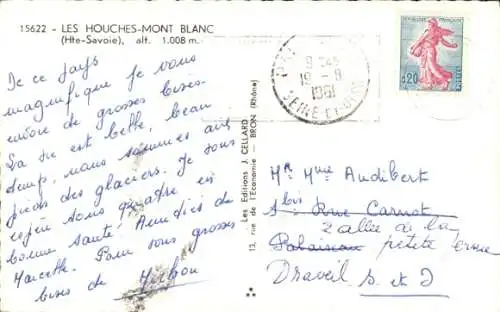 15622 - LES HOUCHES-MONT BLANC
(Hte-Savoie), alt. 1.008 m.
De ce pays
magnifique je vous
envoie de grosses bises.
La vie est belle, beau
temps, nous sommes aux
pieds des glaciers. Je vous
espère tous quatre en
bonne santé. Amitiés de
Marcelle. Pour vous grosses
bises de
Les Editions J. CELLARD
13, rue de l'Economie - BRON (Rhône)
RÉPUBLIQUE FRANÇAISE
0,20
POSTES
19 - 8
1961
SEINE-ET-OISE
Mr Mme Audibert
1 bis Rue Carnot
2 allée de la
Palaiseau petite
Draveil S. et O